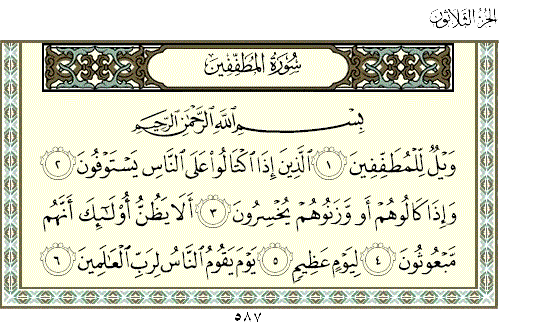 الجزء الثلاثون
سُورَةُ المُطَفِّفِين
بِسْمِ اللَّهِ الرَّحْمَٰنِ الرَّحِيمِ
وَيْلٌ لِّلْمُطَفِّفِينَ ١ الَّذِينَ إِذَا اكْتَالُوا عَلَى النَّاسِ يَسْتَوْفُونَ ٢
وَإِذَا كَالُوهُمْ أَو وَّزَنُوهُمْ يُخْسِرُونَ ٣ أَلَا يَظُنُّ أُولَٰئِكَ أَنَّهُم
مَّبْعُوثُونَ ٤ لِيَوْمٍ عَظِيمٍ ٥ يَوْمَ يَقُومُ النَّاسُ لِرَبِّ الْعَالَمِينَ ٦
٥٨٧